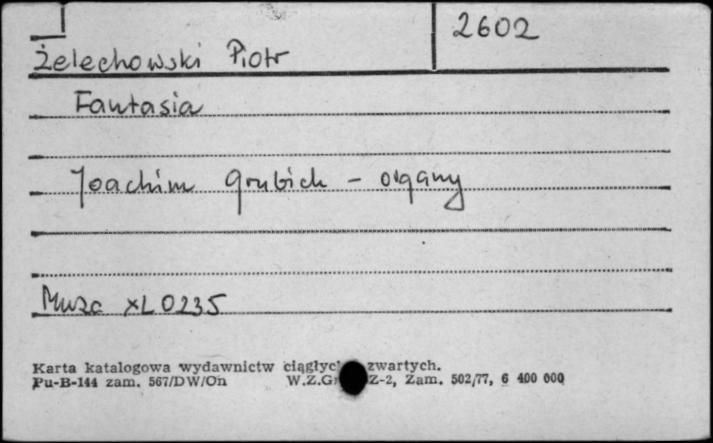 2602
Żelechowski Piotr
Fantasia
Joachim Grubich - organy
Muza XL 0235
Karta katalogowa wydawnictw ciągłych zwartych.
Pu-B-144 zam. 567/DW/On W.Z.Gr Z-2, Zam. 502/77, 6 400 000